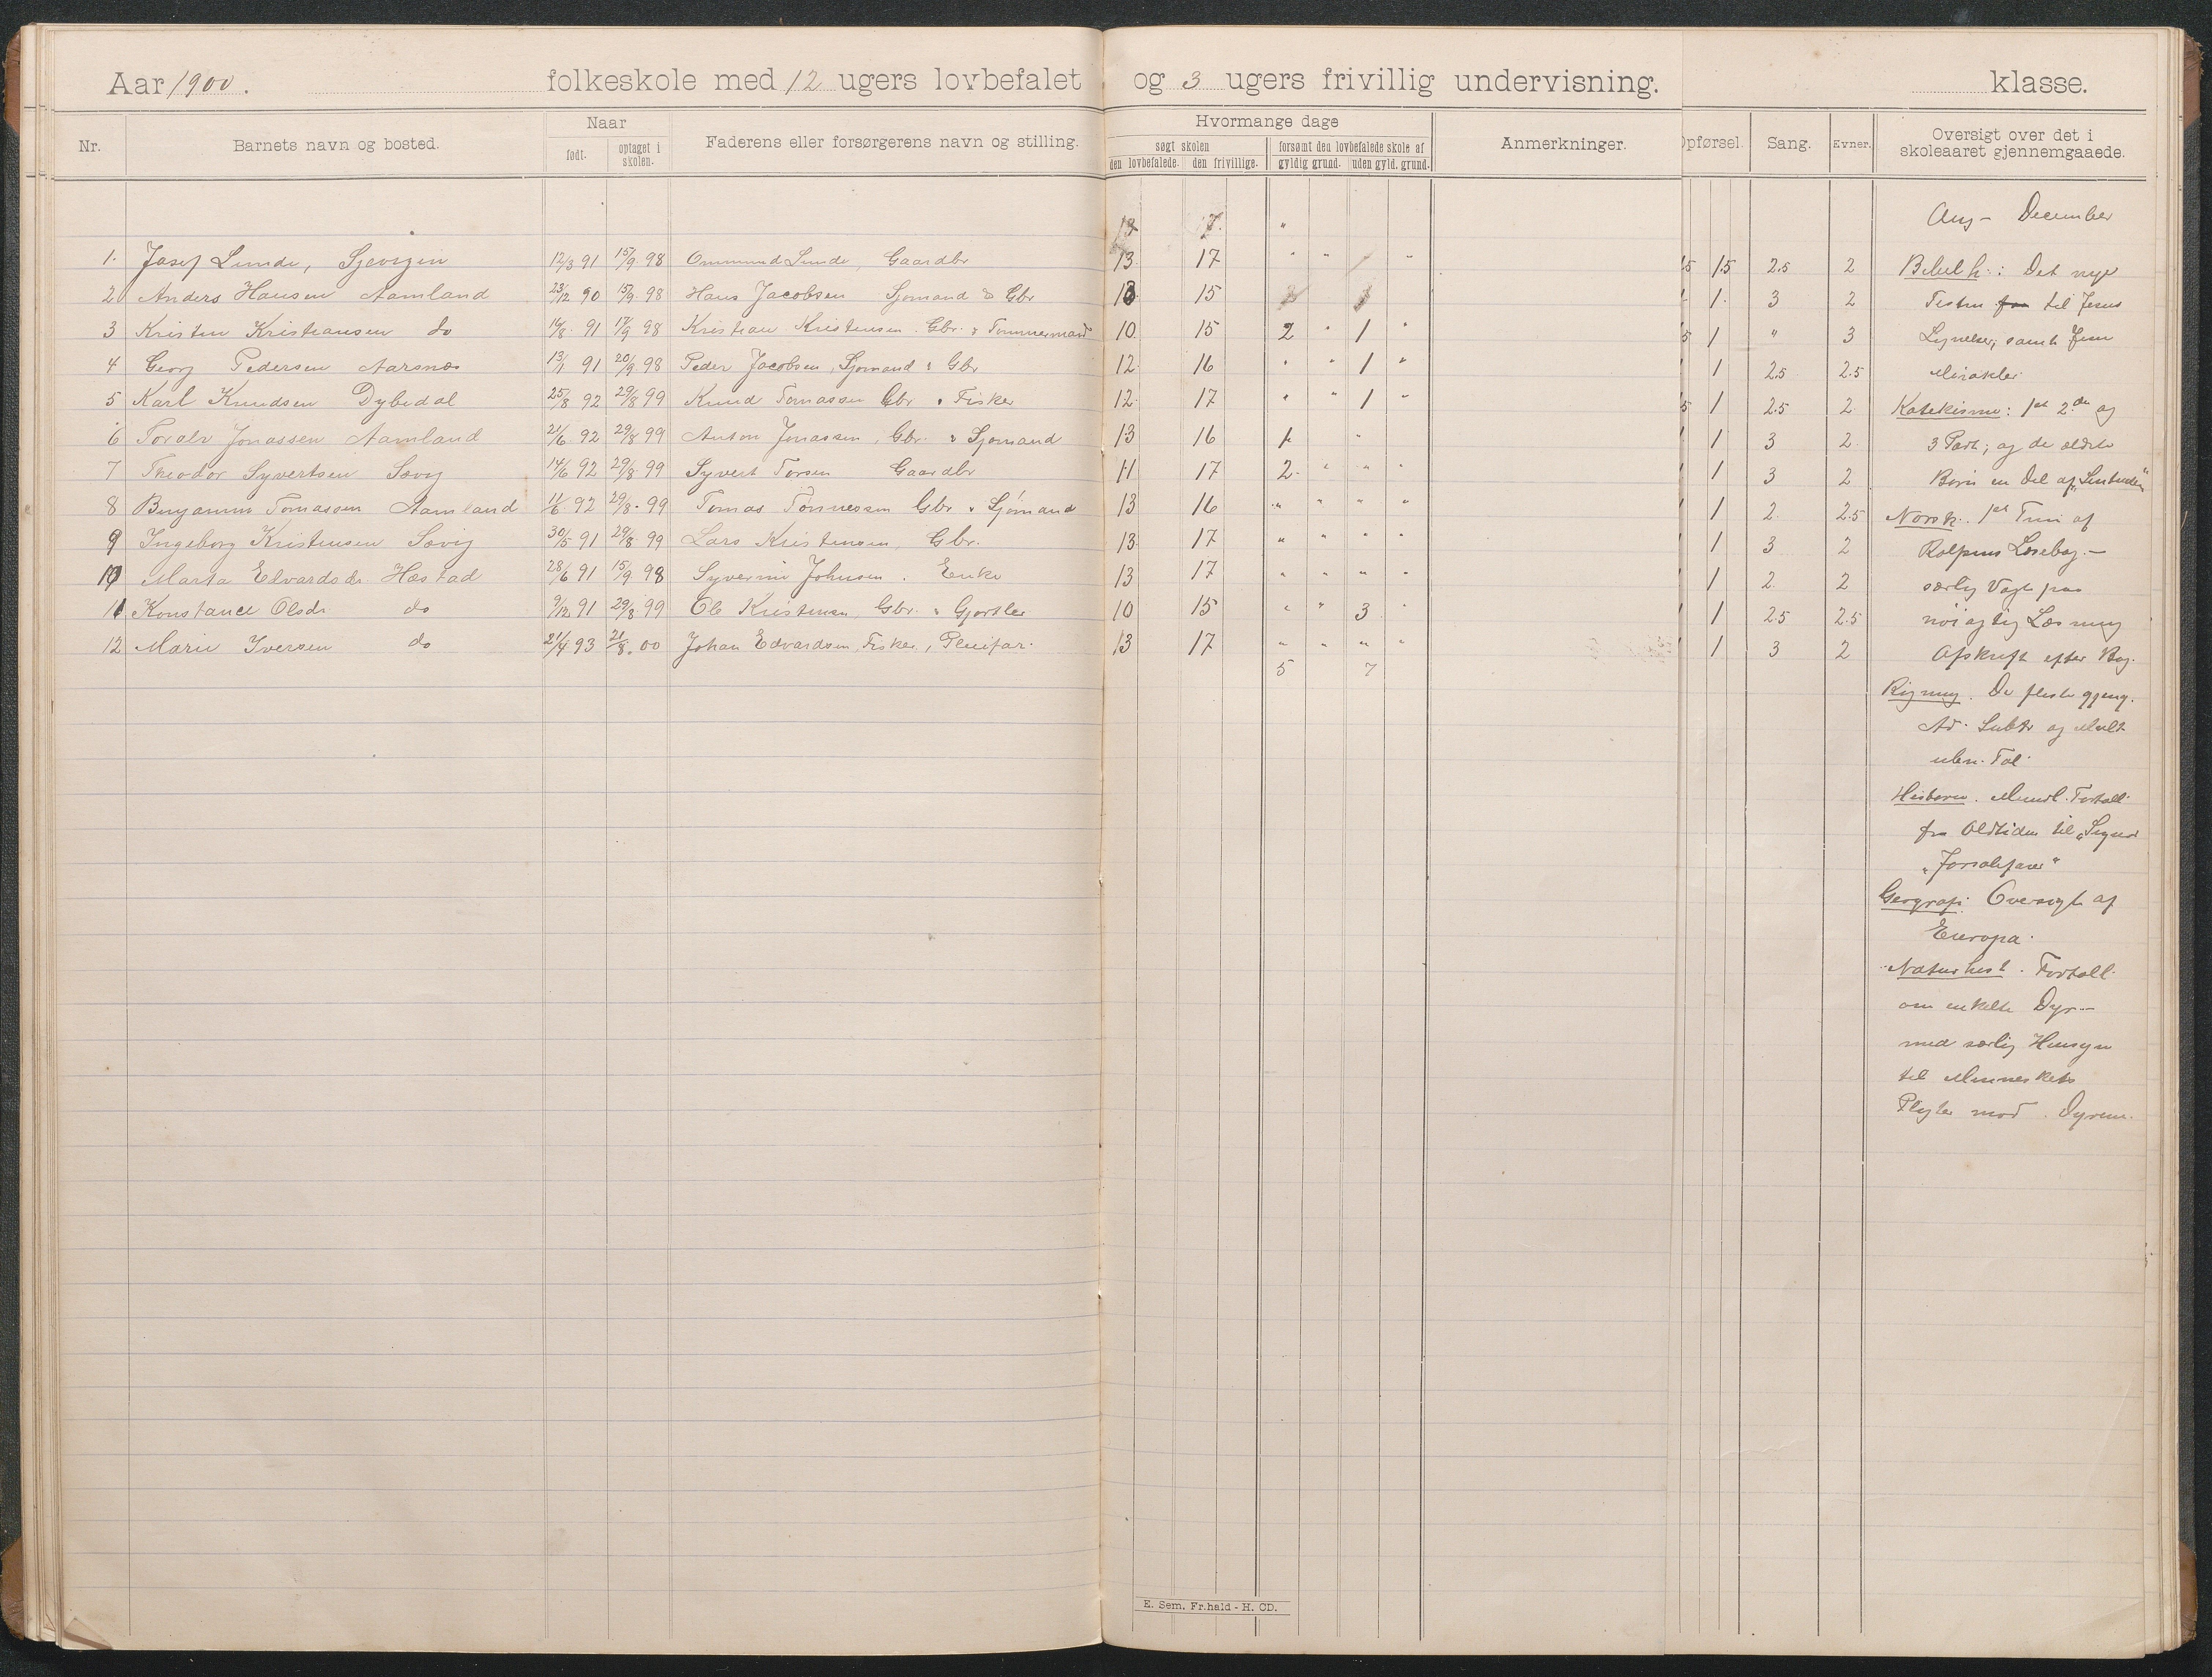 Aar 1900. folkeskole med 12 ugers lovbefalet og 3 ugers frivillig undervisning. klasse.
Nr. Barnets navn og bosted. Naar født. optaget i skolen. Faderens eller forsørgerens navn og stilling. Hvormange dage søgt skolen den lovbefalede. den frivillige. forsømt den lovbefalede skole af gyldig grund. uden gyld. grund. Anmerkninger. Opførsel. Sang. Evner. Oversigt over det i skoleaaret gjennemgaaede.
17. "
Aug - December
1. Josef Lunde, 12/3 91 15/9 98 Ommund Lunde, Gaardbr 13 17 " " " 1.5 2.5 2 Bibelh.: Det nye
2 Anders Hansen Aamland 23/12 90 15/9 98 Hans Jacobsen Sjømand & Gbr 15 1. 3 2 Testm til Jesus
3 Kristen Kristiansen do 16/8 91 17/9 98 Kristian Kristensen. Gbr. & Tømmermand 10 15 2 " 1 " 1 " 3 Lignelser, samt Jesu
4 Georg Pedersen Aarsnes 13/1 91 20/9 98 Peder Jacobsen, Sjømand & Gbr 12 16 " " 1 " 1 2.5 2.5 Mirakler
5 Karl Knudsen Dybedal 25/8 92 29/8 99 Knud Tomassen Gbr & Fisker 12 17 " " 1 " 1 2.5 2 Katekisme: 1st 2den og
6 Toralv Jonassen Aamland 21/6 92 29/8 99 Anton Jonassen, Gbr. & Sjømand 13 16 " 1 3 2 3 Part; og de ældste
7 Theodor Syvertsen Sævig 14/6 92 29/8 99 Syvert Torsen Gaardbr 11 17 2 " " " 1 3 2 Børn en Del af
8 Benjamin Tomassen Aamland 11/6 92 29/8 99 Tomas Tønnessen Gbr & Sjømand 13 16 " " " " 1 2 2.5 Norsk. 1st Trin af
9 Ingeborg Kristensen Sævig 30/5 91 29/8 99 Lars Kristensen, Gbr. 13 17 " " " " 1 3 2 Rolfsens Læsebog. —
10 Marta Edvardsdr Hæstad 28/6 91 15/9 98 Syverine Johnsen. Enke 13 17 " " " " 1 2 2 særlig Vægt paa
11 Konstance Olsdr do 9/12 91 29/8 99 Ole Kristensen, Gbr. & Gjørtler 10 15 " " 3 " 1 2.5 2.5 nøiagtig Læsning
12 Marie Iversen do 21/4 93 21/8 00 Johan Edvardsen, Fisker, Pleiefar. 13 17 " " " " 1 3 2 Afskrift efter Bog.
5 7
Regning. De fleste gjeng.
Ad. Subtr og Mult
uben. Tal
Historie. Mundl. Fortæll.
fra Oldtiden til „Sigurd
„Jorsalfarer"
Geografi: Oversigt af
Europa.
Naturhist. Fortæll.
om enkelte Dyr —
med særlig Hensyn
til Menneskets
Pligter mod Dyrene.
E. Sem. Fr.hald - H. CD.